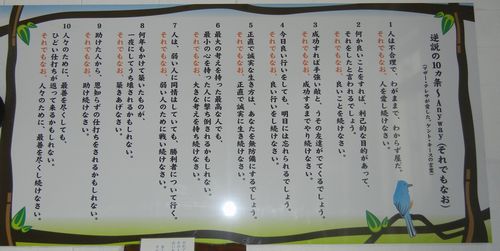 逆説の10ヵ条〜Anyway(それでもなお)
(マザー・テレサが愛した、ケント・キースの言葉)
1 人は不合理で、わがまま、わからず屋だ。
それでもなお、人を愛し続けなさい。
2 何か良いことをすれば、利己的な目的があって、
それをしたと言われるでしょう。
それでもなお、良いことを続けなさい。
3 成功すれば手強い敵と、うその友達がでてくるでしょう。
それでもなお、成功するまでやり続けなさい。
4 今日良い行いをしても、明日には忘れられるでしょう。
それでもなお、良い行いを続けなさい。
5 正直で誠実な生き方は、あなたを無防備にするでしょう。
それでもなお、正直で誠実に生き続けなさい。
6 最大の考えを持った最高な人でも、
最小の心を持った人に撃ち倒されるかもしれない。
それでもなお、大きな考えを持ち続けなさい。
7 人は、弱い人に同情はしていても、勝利者について行く。
それでもなお、弱い人のために戦い続けなさい。
8 何年もかけて築いたものが、
一夜にしてうち壊されるかもしれない。
それでもなお、築きあげなさい。
9 助けた人から、恩知らずの仕打ちをされるかもしれない。
それでもなお、助け続けなさい。
10 人々のために、最善を尽くしても、
ひどい仕打ちが返って来るかもしれない。
それでもなお、人々のために、最善を尽くし続けなさい。